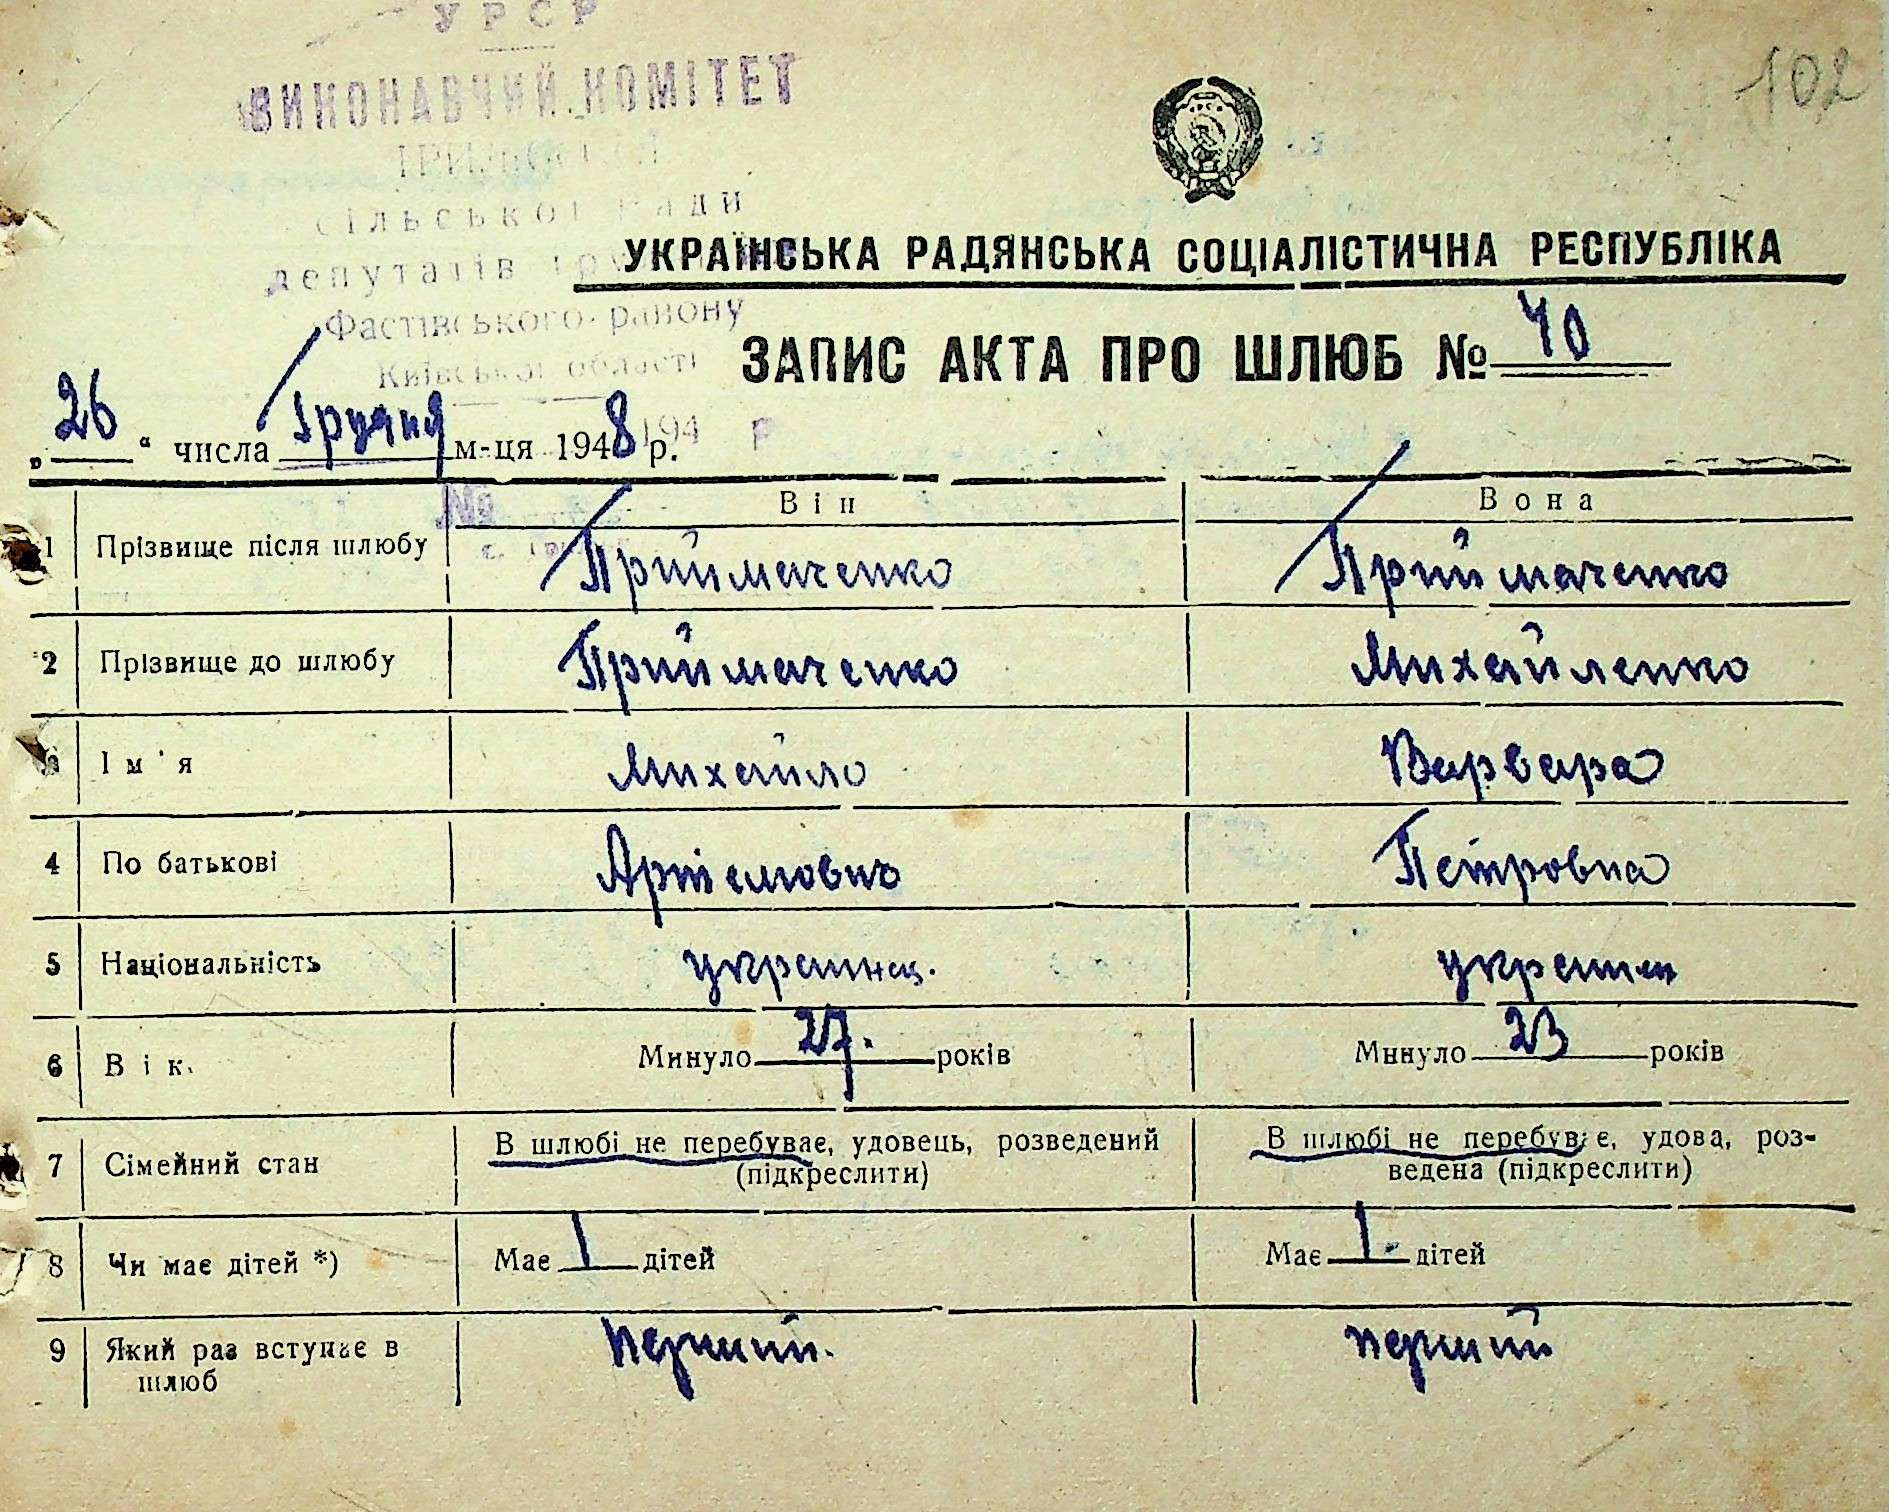 УРСР
102
ВИКОНАВЧИЙ КОМІТЕТ
сільської Ради
депутатів
УКРАЇНСЬКА РАДЯНСЬКА СОЦІАЛІСТИЧНА РЕСПУБЛІКА
Фастівського району
Київської області
ЗАПИС АКТА ПРО ШЛЮБ № 40
194 р
„26“ числа Грудня м-ця 1948 р.
№
Він Вона
1 Прізвище після шлюбу Приймаченко Приймаченко
2 Прізвище до шлюбу Приймаченко Михайленко
Ім'я Михайло Варвара
4 По батькові Артемович Петровна
5 Національність украинец. украин
6 Вік. Минуло 27. років Минуло 23 років
7 Сімейний стан В шлюбі не перебуває, удовець, розведений В шлюбі не перебуває, удова, роз-
(підкреслити) ведена (підкреслити)
8 Чи має дітей *) Має 1 дітей Має 1. дітей
9 Який раз вступає в перший. перший
шлюб